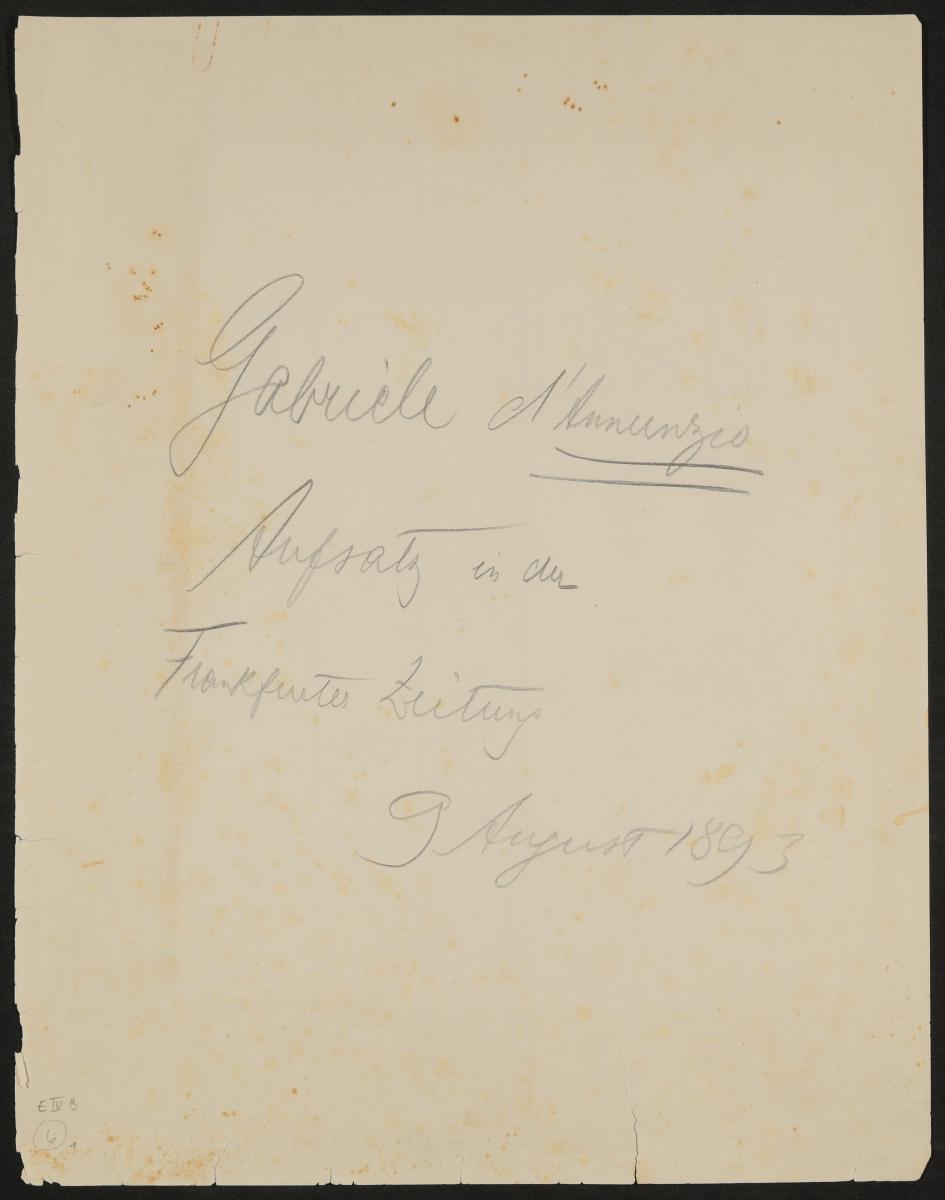 Gabriele d'Annunzio
Aufsatz in der
Frankfurter Zeitung
9 August 1893
E IV B
6 1